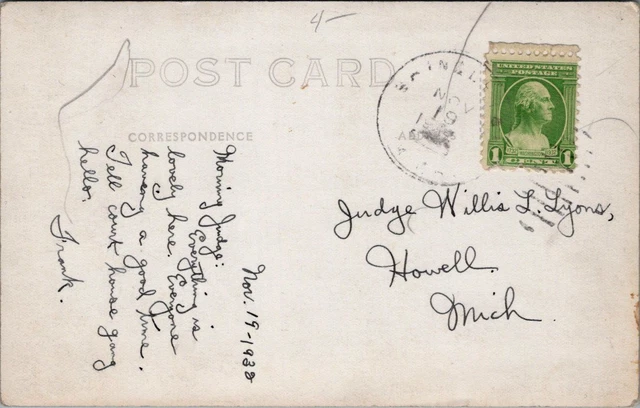 4-
POST CARD
CORRESPONDENCE
UNITED STATES
POSTAGE
1 CENT 1
NOV
19
Nov. 19-1932
Morning Judge:
Everything is
lovely here. Everyone
having a good time.
Tell court house gang
hello.
Frank.
Judge Willis L. Lyons,
Howell.
Mich.